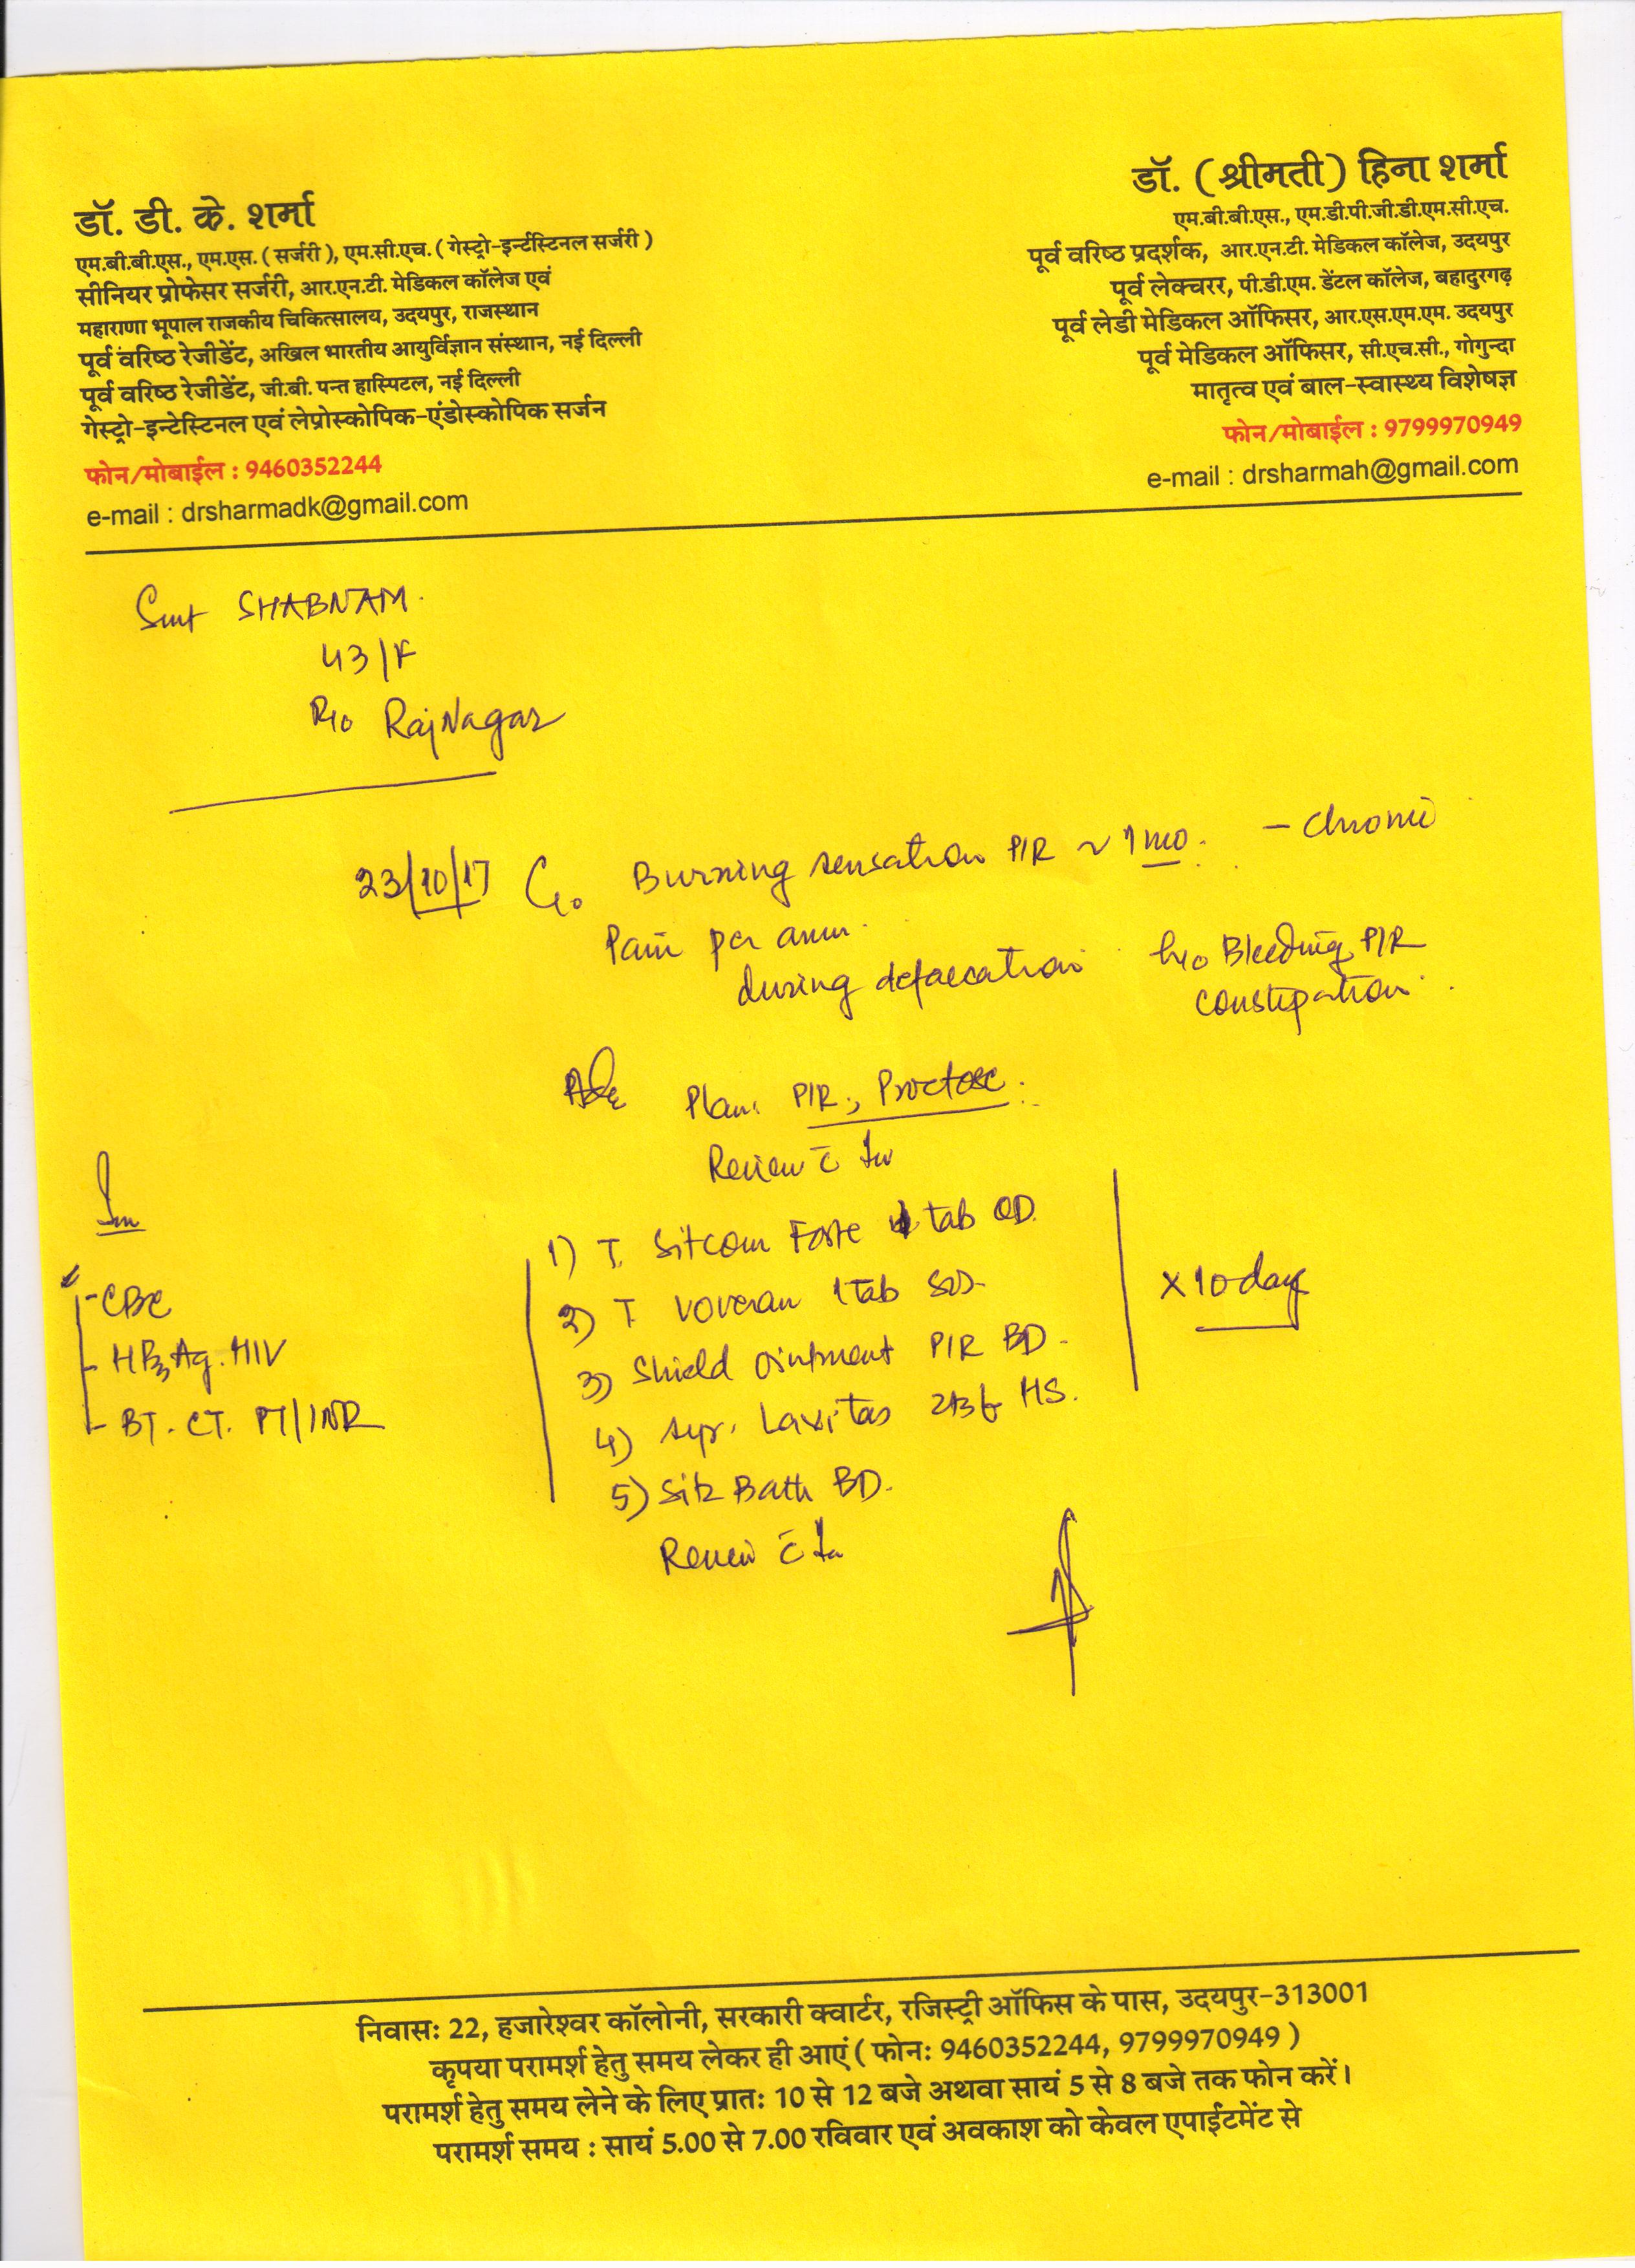 डॉ. डी. के. शर्मा
एम.बी.बी.एस., एम.एस. ( सर्जरी ), एम.सी.एच. ( गेस्ट्रो-इन्टेंस्टिनल सर्जरी )
सीनियर प्रोफेसर सर्जरी, आर.एन.टी. मेडिकल कॉलेज एवं
महाराणा भूपाल राजकीय चिकित्सालय, उदयपुर, राजस्थान
पूर्व वरिष्ठ रेजीडेंट, अखिल भारतीय आयुर्विज्ञान संस्थान, नई दिल्ली
पूर्व वरिष्ठ रेजीडेंट, जी.बी. पन्त हास्पिटल, नई दिल्ली
गेस्ट्रो-इन्टेस्टिनल एवं लेप्रोस्कोपिक-एंडोस्कोपिक सर्जन
फोन/मोबाईल : 9460352244
e-mail : drsharmadk@gmail.com
डॉ. ( श्रीमती ) हिना शर्मा
एम.बी.बी.एस., एम.डी.पी.जी.डी.एम.सी.एच.
पूर्व वरिष्ठ प्रदर्शक, आर.एन.टी. मेडिकल कॉलेज, उदयपुर
पूर्व लेक्चरर, पी.डी.एम. डेंटल कॉलेज, बहादुरगढ़
पूर्व लेडी मेडिकल ऑफिसर, आर.एस.एम.एम. उदयपुर
पूर्व मेडिकल ऑफिसर, सी.एच.सी., गोगुन्दा
मातृत्व एवं बाल-स्वास्थ्य विशेषज्ञ
फोन/मोबाईल : 9799970949
e-mail : drsharmah@gmail.com
Smt SHABNAM.
43/F
R/o RajNagar
23/10/17 C/o Burning sensation P/R ~ 1 mo. - chronic
Pain per anum.
during defaecation h/o Bleeding P/R
constipation.
Plan: P/R,
Review c̄
1) T. Sitcom Forte 1 tab OD.
2) T Voveran 1 tab SOS.
3) Shield ointment P/R BD.
4) syp. Laxitas HS.
5) Sitz Bath BD.
Review c̄
x 10 days
Inv
- CBC
- HBsAg. HIV
- BT. CT. PT/INR
निवासः 22, हजारेश्वर कॉलोनी, सरकारी क्वार्टर, रजिस्ट्री ऑफिस के पास, उदयपुर-313001
कृपया परामर्श हेतु समय लेकर ही आएं ( फोनः 9460352244, 9799970949 )
परामर्श हेतु समय लेने के लिए प्रातः 10 से 12 बजे अथवा सायं 5 से 8 बजे तक फोन करें।
परामर्श समय : सायं 5.00 से 7.00 रविवार एवं अवकाश को केवल एपाईंटमेंट से